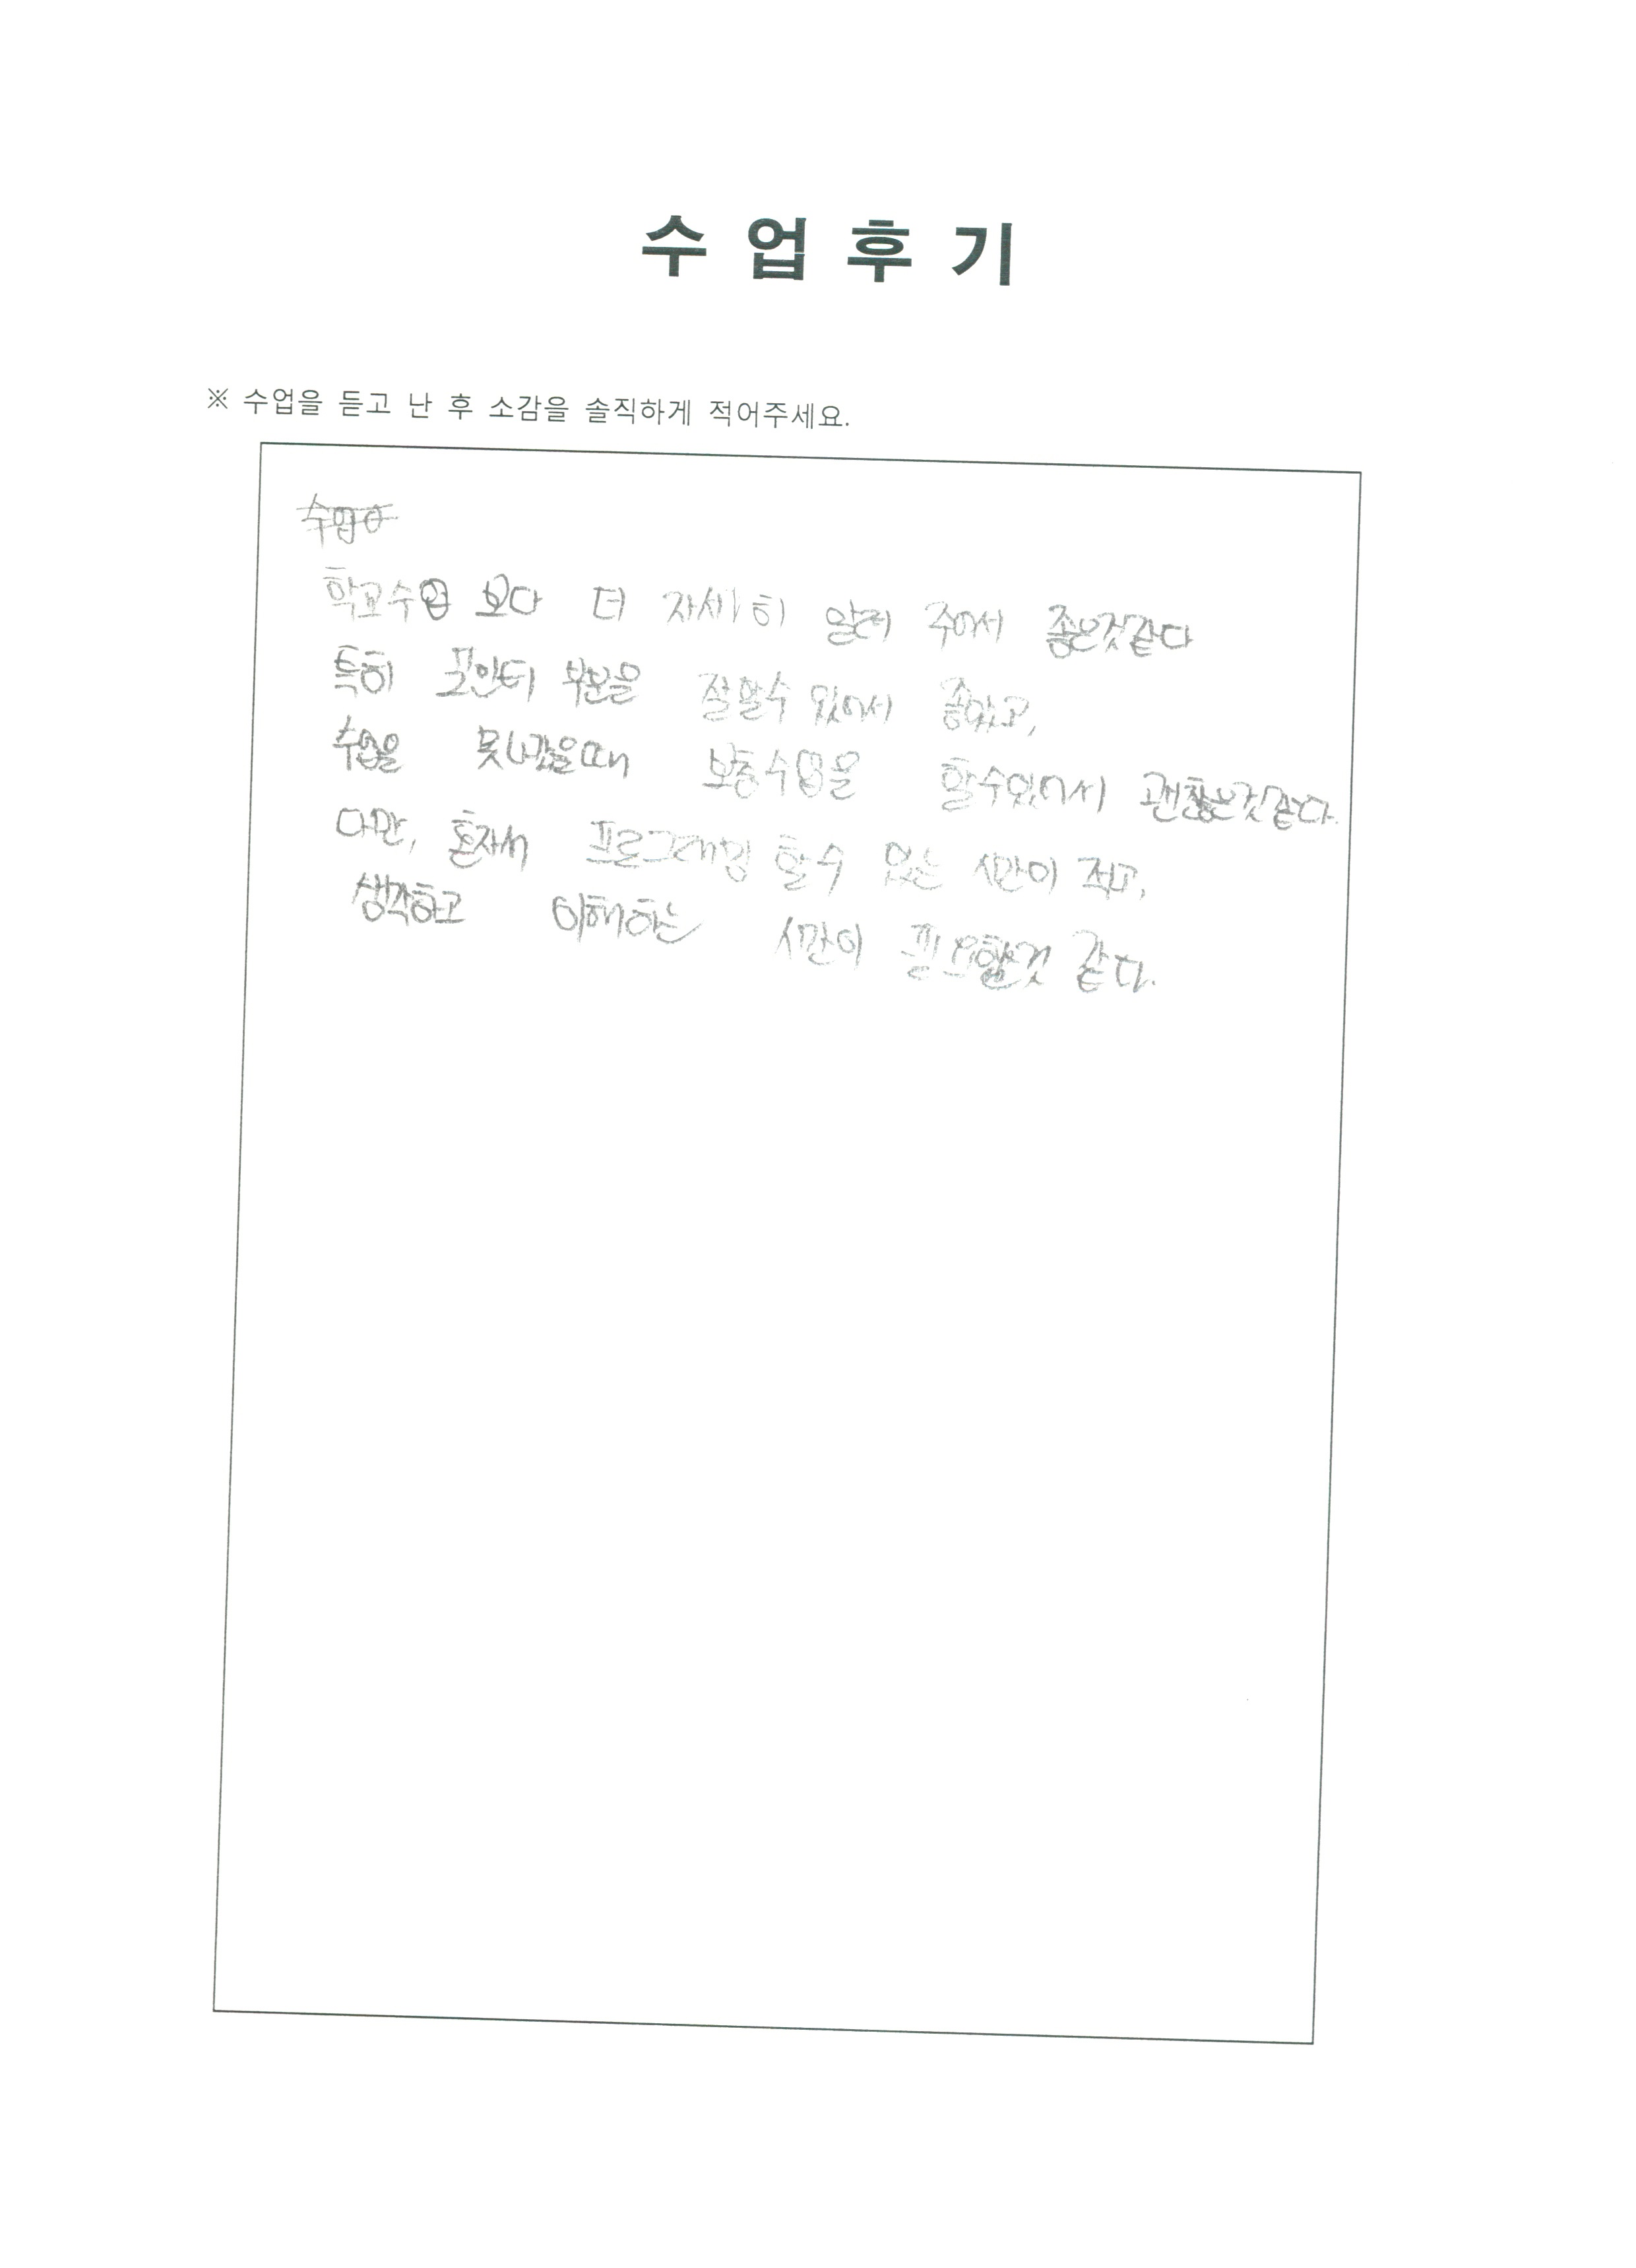 수 업 후 기
※ 수업을 듣고 난 후 소감을 솔직하게 적어주세요.
수업으
학교수업 보다 더 자세히 알려 주어서 좋은것같다
특히 포인터 부분을 잘알수 있어서 좋았고,
수업을 못나갔을때 보충수업을 할수있어서 괜찮은것같다.
다만, 혼자서 프로그래밍 할수 있는 시간이 적고,
생각하고 이해하는 시간이 필요할것 같다.